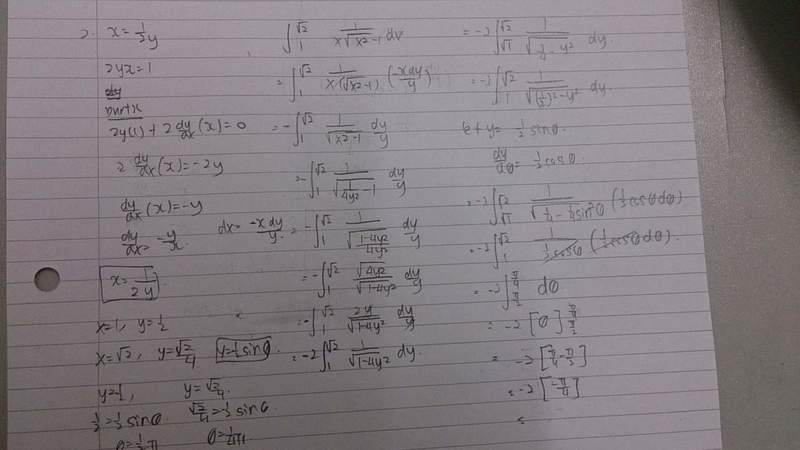 2. x = 1/2y
2yx = 1
dy
burtx
2y(1) + 2 dy/dx (x) = 0
2 dy/dx (x) = -2y
dy/dx (x) = -y
dy/dx = -y/x    dx = -x dy/y
x = 1/2y
x=1, y=1/2
x=√2, y=√2/4    y=1/2 sinθ
y=1/2,    y=√2/4.
1/2 = 1/2 sinθ    √2/4 = 1/2 sinθ
θ = 1/2 π    θ = 1/4 π
∫₁^√2 1/(x√(x²-1)) dx
= ∫₁^√2 1/(x·(√(x²-1))) (-x dy/y)
= -∫₁^√2 1/√(x²-1) dy/y
= -∫₁^√2 1/√(1/4y² - 1) dy/y
= -∫₁^√2 1/√((1-4y²)/4y²) dy/y
= -∫₁^√2 √(4y²)/√(1-4y²) dy/y
= -∫₁^√2 2y/√(1-4y²) dy/y
= -2∫₁^√2 1/√(1-4y²) dy.
= -2∫_√1^√2 1/√(1/4 - y²) dy.
= -2∫₁^√2 1/√((1/2)² - y²) dy.
let y = 1/2 sinθ.
dy/dθ = 1/2 cosθ.
= -2∫_√1^√2 1/√(1/4 - 1/4 sin²θ) (1/2 cosθ dθ)
= -2∫₁^√2 1/(1/2 cosθ) (1/2 cosθ dθ).
= -2∫_(π/2)^(π/4) dθ
= -2 [θ]_(π/2)^(π/4)
= -2 [π/4 - π/2]
= -2 [-π/4]
=